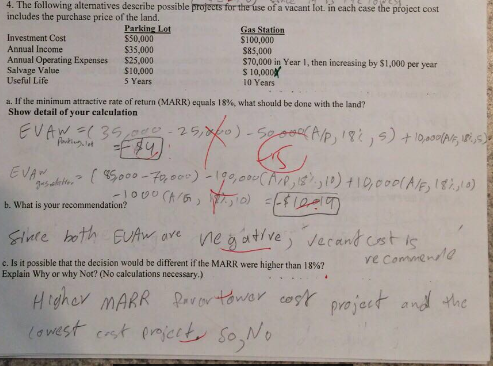 4. The following alternatives describe possible projects for the use of a vacant lot. in each case the project cost
includes the purchase price of the land.
Parking Lot Gas Station
Investment Cost $50,000 $100,000
Annual Income $35,000 $85,000
Annual Operating Expenses $25,000 $70,000 in Year 1, then increasing by $1,000 per year
Salvage Value $10,000 $ 10,000
Useful Life 5 Years 10 Years
a. If the minimum attractive rate of return (MARR) equals 18%, what should be done with the land?
Show detail of your calculation
EUAW parking lot = (35,000 - 25,000) - 50,000(A/P, 18%, 5) + 10,000(A/F, 18%, 5)
-5
EUAW = (85,000 - 70,000) - 100,000(A/P, 18%, 10) + 10,000(A/F, 18%, 10)
-1000 (A/G, 18%, 10) =
b. What is your recommendation?
Since both EUAW are negative, vecant cost is
recommende
c. Is it possible that the decision would be different if the MARR were higher than 18%?
Explain Why or why Not? (No calculations necessary.)
Higher MARR favor lower cost project and the
lowest cost project, So, No